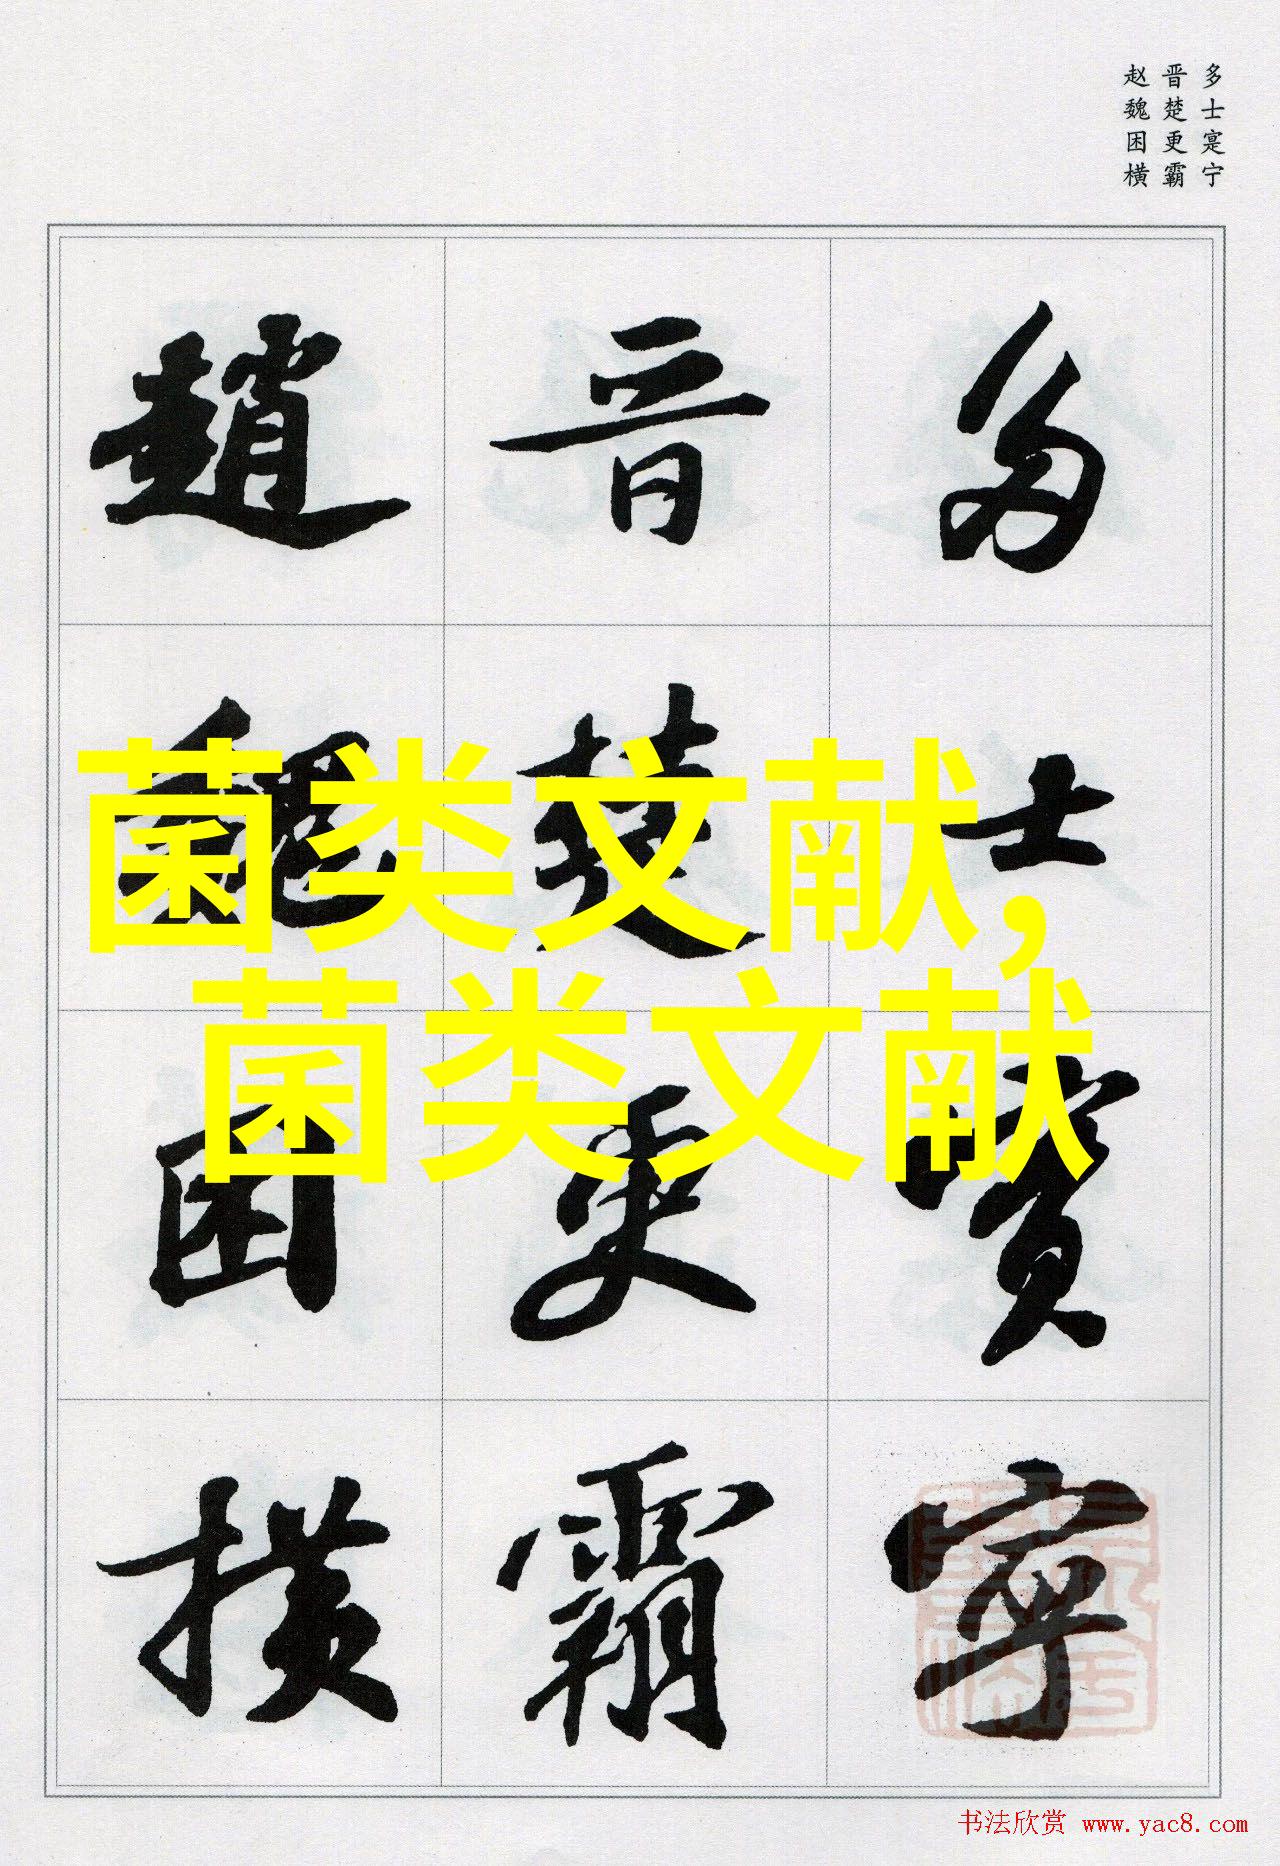 多士寔宁
晋楚更霸
赵魏困横
多士實寧
晋楚更霸
趙魏困横
菌类文献,
菌类文献
书法欣赏 www.yac8.com